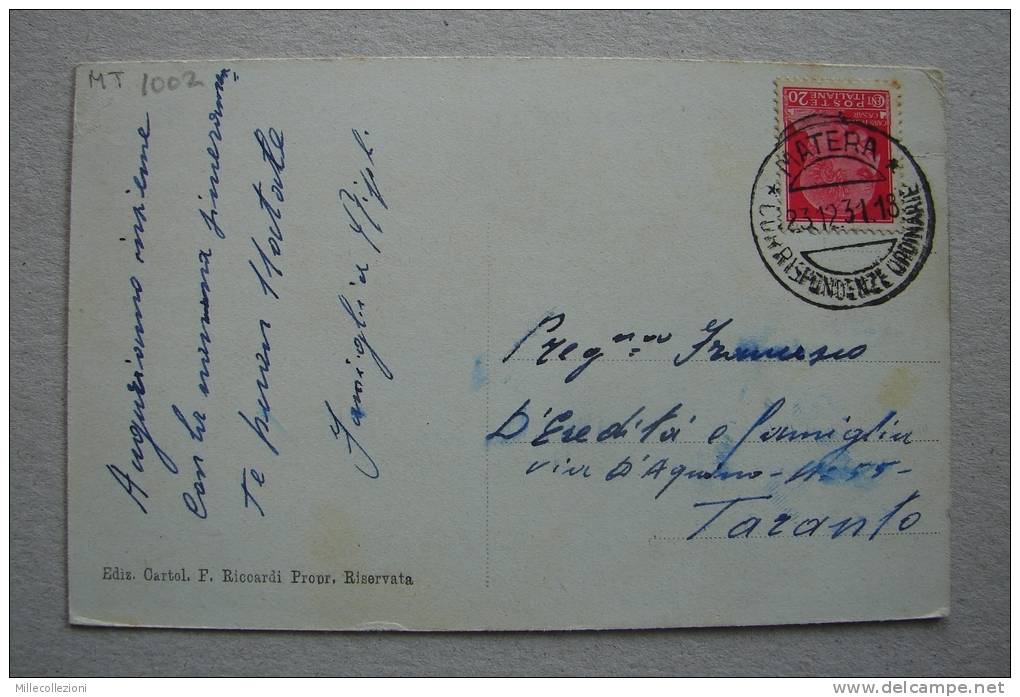 MT 1002
Auguriamo insieme
con la mamma sinceramen=
te buon Natale
Famiglia
CENT 20
POSTE
ITALIANE
MATERA
23.12.31.18
CORRISPONDENZE ORDINARIE
Preg.mo Francesco
D'Eredità e famiglia
via D'Aquino - N. 55 -
Taranto
Ediz. Cartol. F. Riccardi Propr. Riservata
Millecollezioni
www.delcampe.net